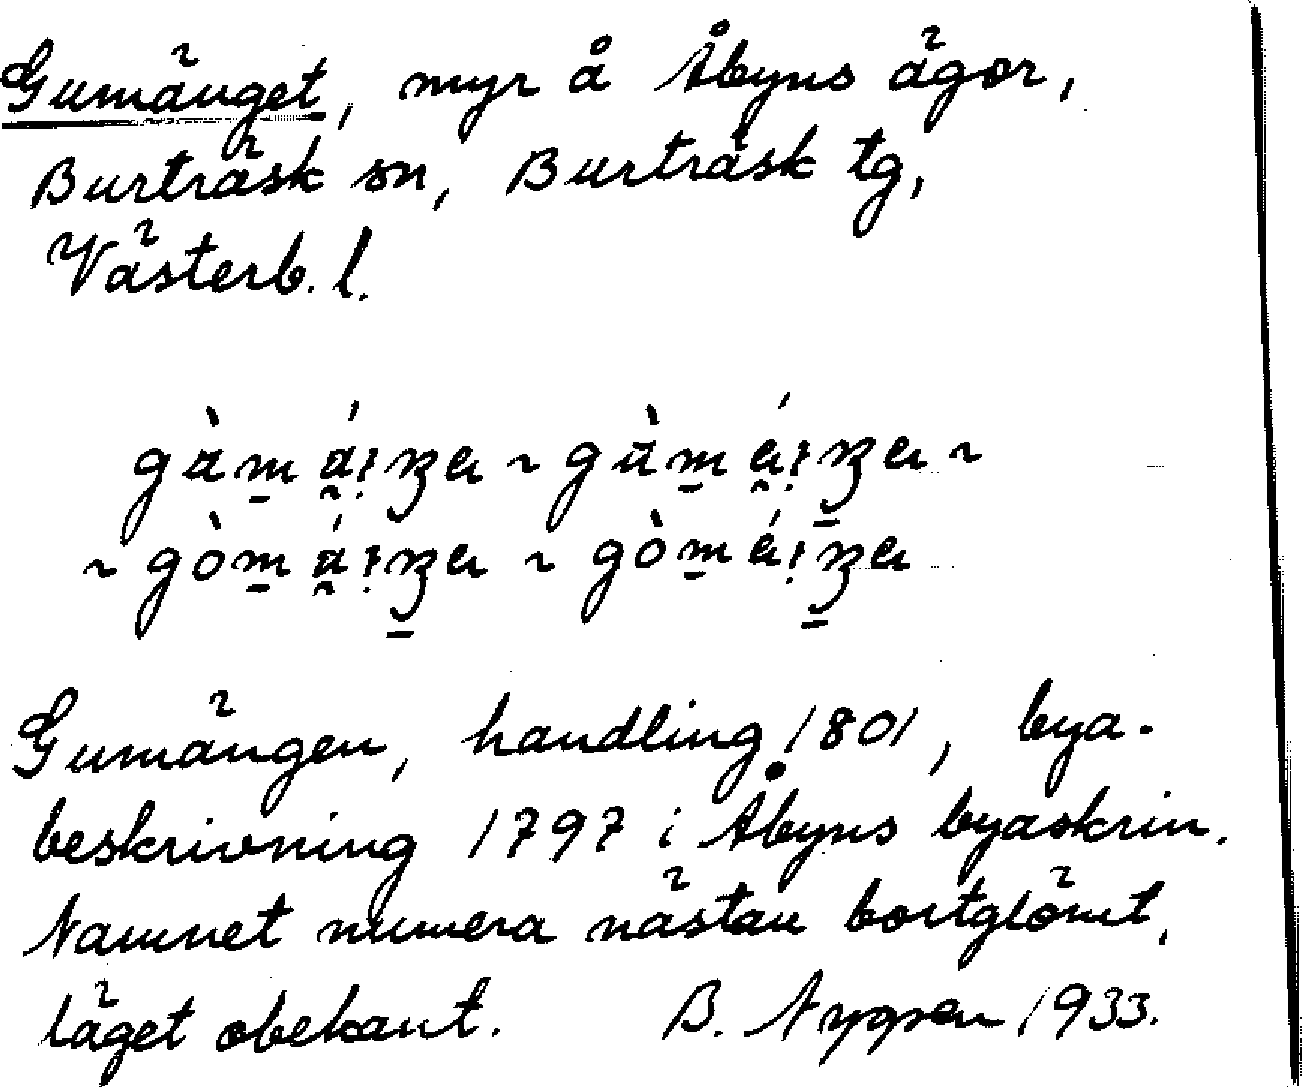 Gumänget, myr å Åbyns ägor,
Burträsk sn, Burträsk tg,
Västerb. l.
Gumängen, handling 1801, bya-
beskrivning 1797 i Åbyns byaskrin.
Namnet numera nästan bortglömt,
läget obekant. B. Nygren 1933.